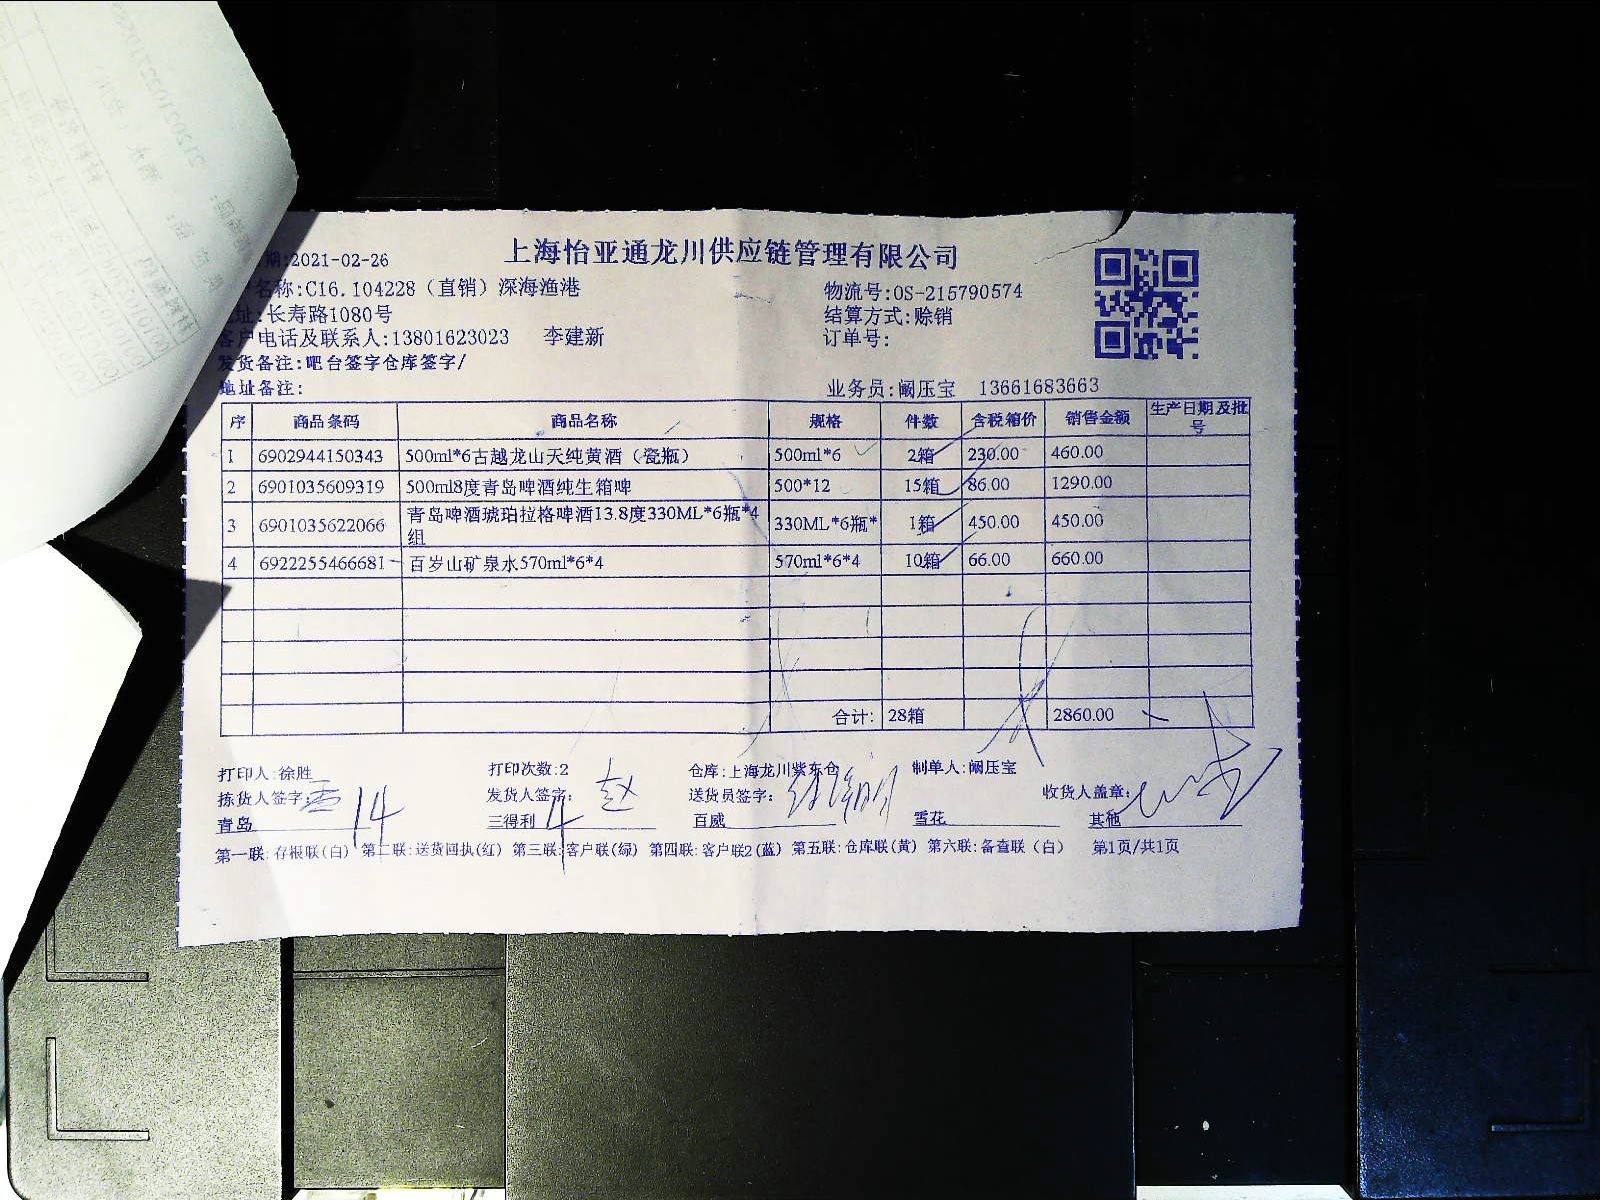 上海怡亚通龙川供应链管理有限公司
期:2021-02-26
名称:C16.104228（直销）深海渔港
物流号:OS-215790574
址:长寿路1080号
结算方式:赊销
客户电话及联系人:13801623023 李建新
订单号:
发货备注:吧台签字仓库签字/
地址备注:
业务员:阚压宝 13661683663
序 商品条码 商品名称 规格 件数 含税箱价 销售金额 生产日期及批号
1 6902944150343 500ml*6古越龙山天纯黄酒（瓷瓶） 500ml*6 2箱 230.00 460.00
2 6901035609319 500ml8度青岛啤酒纯生箱啤 500*12 15箱 86.00 1290.00
3 6901035622066 青岛啤酒琥珀拉格啤酒13.8度330ML*6瓶*4组 330ML*6瓶* 1箱 450.00 450.00
4 6922255466681 百岁山矿泉水570ml*6*4 570ml*6*4 10箱 66.00 660.00
合计: 28箱 2860.00
打印人:徐胜 打印次数:2 仓库:上海龙川紫东仓 制单人:阚压宝
拣货人签字: 发货人签字: 赵 送货员签字: 收货人盖章:
青岛 14 三得利 4 百威 雪花 其他
第一联:存根联(白) 第二联:送货回执(红) 第三联:客户联(绿) 第四联:客户联2(蓝) 第五联:仓库联(黄) 第六联:备查联（白） 第1页/共1页